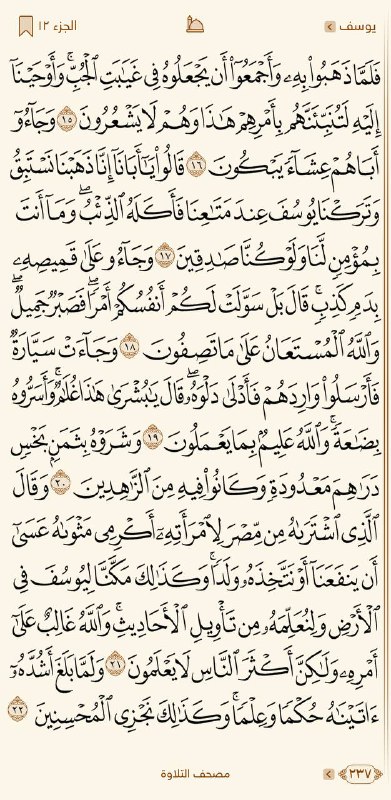 يوسف
الجزء ١٢
فَلَمَّا ذَهَبُوا۟ بِهِۦ وَأَجْمَعُوٓا۟ أَن يَجْعَلُوهُ فِى غَيَـٰبَتِ ٱلْجُبِّ ۚ وَأَوْحَيْنَآ
إِلَيْهِ لَتُنَبِّئَنَّهُم بِأَمْرِهِمْ هَـٰذَا وَهُمْ لَا يَشْعُرُونَ ١٥ وَجَآءُوٓ
أَبَاهُمْ عِشَآءً يَبْكُونَ ١٦ قَالُوا۟ يَـٰٓأَبَانَآ إِنَّا ذَهَبْنَا نَسْتَبِقُ
وَتَرَكْنَا يُوسُفَ عِندَ مَتَـٰعِنَا فَأَكَلَهُ ٱلذِّئْبُ ۖ وَمَآ أَنتَ
بِمُؤْمِنٍ لَّنَا وَلَوْ كُنَّا صَـٰدِقِينَ ١٧ وَجَآءُو عَلَىٰ قَمِيصِهِۦ
بِدَمٍ كَذِبٍ ۚ قَالَ بَلْ سَوَّلَتْ لَكُمْ أَنفُسُكُمْ أَمْرًا ۖ فَصَبْرٌ جَمِيلٌ ۖ
وَٱللَّهُ ٱلْمُسْتَعَانُ عَلَىٰ مَا تَصِفُونَ ١٨ وَجَآءَتْ سَيَّارَةٌ
فَأَرْسَلُوا۟ وَارِدَهُمْ فَأَدْلَىٰ دَلْوَهُۥ ۖ قَالَ يَـٰبُشْرَىٰ هَـٰذَا غُلَـٰمٌ ۚ وَأَسَرُّوهُ
بِضَـٰعَةً ۚ وَٱللَّهُ عَلِيمٌۢ بِمَا يَعْمَلُونَ ١٩ وَشَرَوْهُ بِثَمَنٍۭ بَخْسٍ
دَرَٰهِمَ مَعْدُودَةٍ وَكَانُوا۟ فِيهِ مِنَ ٱلزَّٰهِدِينَ ٢٠ وَقَالَ
ٱلَّذِى ٱشْتَرَىٰهُ مِن مِّصْرَ لِٱمْرَأَتِهِۦٓ أَكْرِمِى مَثْوَىٰهُ عَسَىٰٓ
أَن يَنفَعَنَآ أَوْ نَتَّخِذَهُۥ وَلَدًا ۚ وَكَذَٰلِكَ مَكَّنَّا لِيُوسُفَ فِى
ٱلْأَرْضِ وَلِنُعَلِّمَهُۥ مِن تَأْوِيلِ ٱلْأَحَادِيثِ ۚ وَٱللَّهُ غَالِبٌ عَلَىٰٓ
أَمْرِهِۦ وَلَـٰكِنَّ أَكْثَرَ ٱلنَّاسِ لَا يَعْلَمُونَ ٢١ وَلَمَّا بَلَغَ أَشُدَّهُۥٓ
ءَاتَيْنَـٰهُ حُكْمًا وَعِلْمًا ۚ وَكَذَٰلِكَ نَجْزِى ٱلْمُحْسِنِينَ ٢٢
٢٣٧
مصحف التلاوة